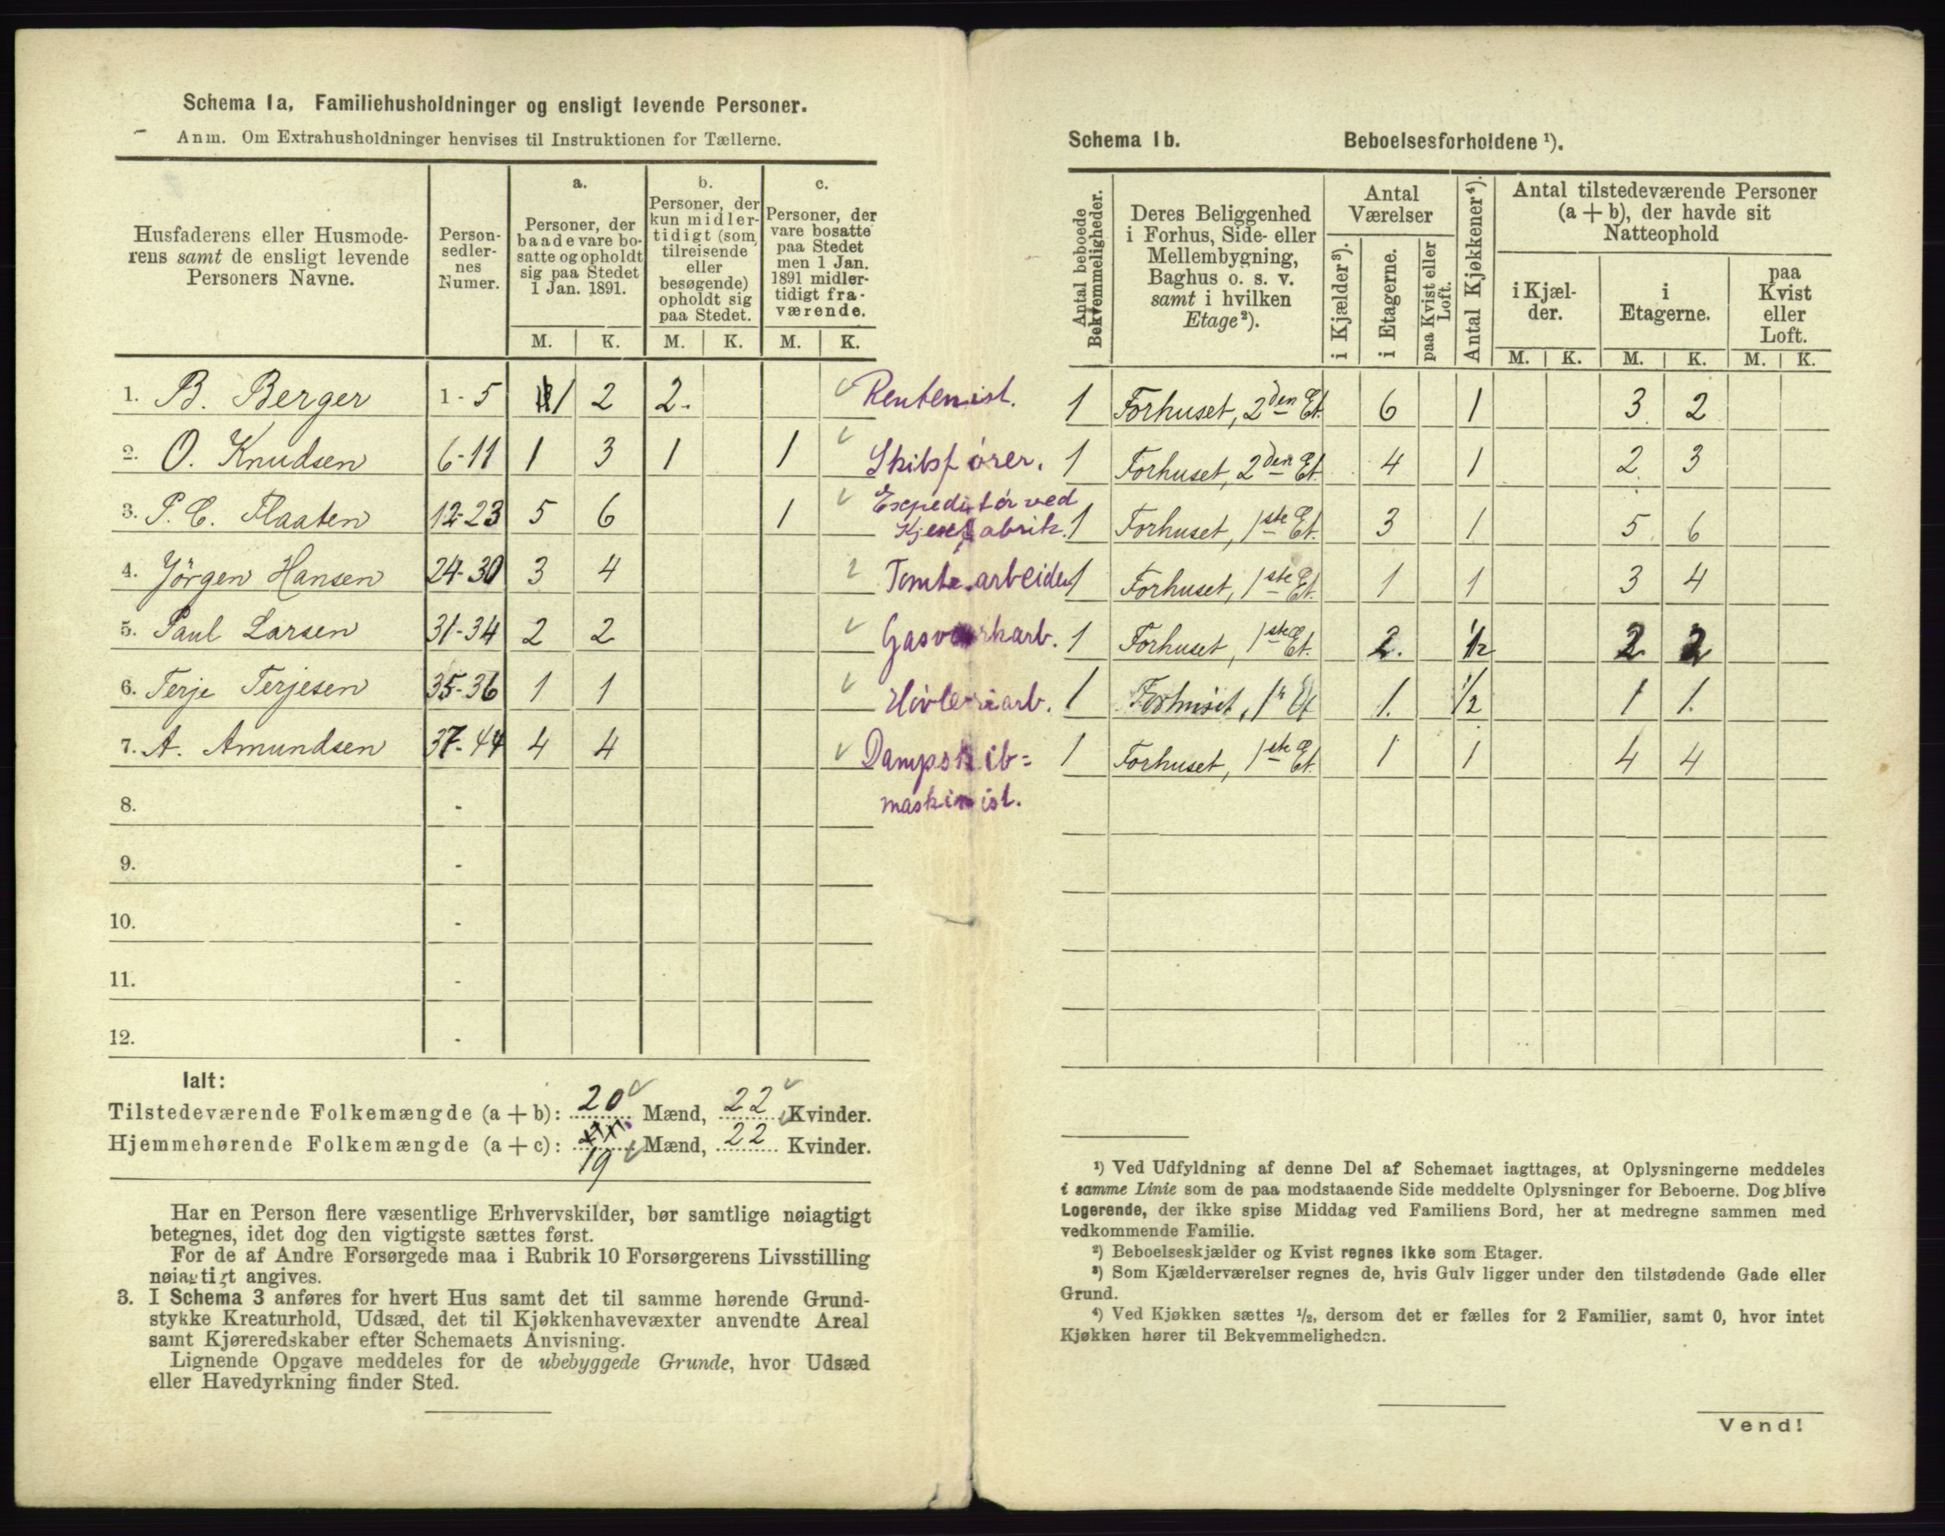 Schema 1a, Familiehusholdninger og ensligt levende Personer.
Anm. Om Extrahusholdninger henvises til Instruktionen for Tællerne.
Husfaderens eller Husmoderens samt de ensligt levende Personers Navne.
Personsedlernes Numer.
a.
Personer, der baade vare bosatte og opholdt sig paa Stedet 1 Jan. 1891.
b.
Personer, der kun midlertidigt (som tilreisende eller besøgende) opholdt sig paa Stedet.
c.
Personer, der vare bosatte paa Stedet men 1 Jan. 1891 midlertidigt fraværende.
M. K. M. K. M. K.
1. B. Berger 1-5 1 2 2. Rentenist.
2. O. Knudsen 6-11 1 3 1 1 Skibsfører.
3. P. C. Flaaten 12-23 5 6 1 Expeditør ved Kjexfabrik.
4. Jörgen Hansen 24-30 3 4 Tomtearbeider
5. Paul Larsen 31-34 2 2 Gasværkarb.
6. Terje Terjesen 35-36 1 1 Høvleriarb.
7. A. Amundsen 37-44 4 4 Dampskib=
maskinist.
8. -
9. -
10. -
11. -
12. -
Ialt:
Tilstedeværende Folkemængde (a + b): 20 Mænd, 22 Kvinder.
Hjemmehørende Folkemængde (a + c): 19 Mænd, 22 Kvinder.
Har en Person flere væsentlige Erhvervskilder, bør samtlige nøiagtigt
betegnes, idet dog den vigtigste sættes først.
For de af Andre Forsørgede maa i Rubrik 10 Forsørgerens Livsstilling
nøiagtigt angives.
3. I Schema 3 anføres for hvert Hus samt det til samme hørende Grund-
stykke Kreaturhold, Udsæd, det til Kjøkkenhavevæxter anvendte Areal
samt Kjøreredskaber efter Schemaets Anvisning.
Lignende Opgave meddeles for de ubebyggede Grunde, hvor Udsæd
eller Havedyrkning finder Sted.
Schema 1b. Beboelsesforholdene ¹).
Antal beboede Bekvemmeligheder.
Deres Beliggenhed i Forhus, Side- eller Mellembygning, Baghus o. s. v. samt i hvilken Etage²).
Antal Værelser
i Kjælder³).
i Etagerne.
paa Kvist eller Loft.
Antal Kjøkkener⁴).
Antal tilstedeværende Personer (a + b), der havde sit Natteophold
i Kjælder.
i Etagerne.
paa Kvist eller Loft.
M. K. M. K. M. K.
1 Forhuset, 2den Et. 6 1 3 2
1 Forhuset, 2den Et. 4 1 2 3
1 Forhuset, 1ste Et. 3 1 5 6
1 Forhuset, 1ste Et. 1 1 3 4
1 Forhuset, 1ste Et. 2. 1/2 2 2
1 Forhuset, 1r Et 1. 1/2 1 1.
1 Forhuset, 1ste Et. 1 1 4 4
¹) Ved Udfyldning af denne Del af Schemaet iagttages, at Oplysningerne meddeles
i samme Linie som de paa modstaaende Side meddelte Oplysninger for Beboerne. Dog blive
Logerende, der ikke spise Middag ved Familiens Bord, her at medregne sammen med
vedkommende Familie.
²) Beboelseskjælder og Kvist regnes ikke som Etager.
³) Som Kjælderværelser regnes de, hvis Gulv ligger under den tilstødende Gade eller
Grund.
⁴) Ved Kjøkken sættes ½, dersom det er fælles for 2 Familier, samt 0, hvor intet
Kjøkken hører til Bekvemmeligheden.
Vend!